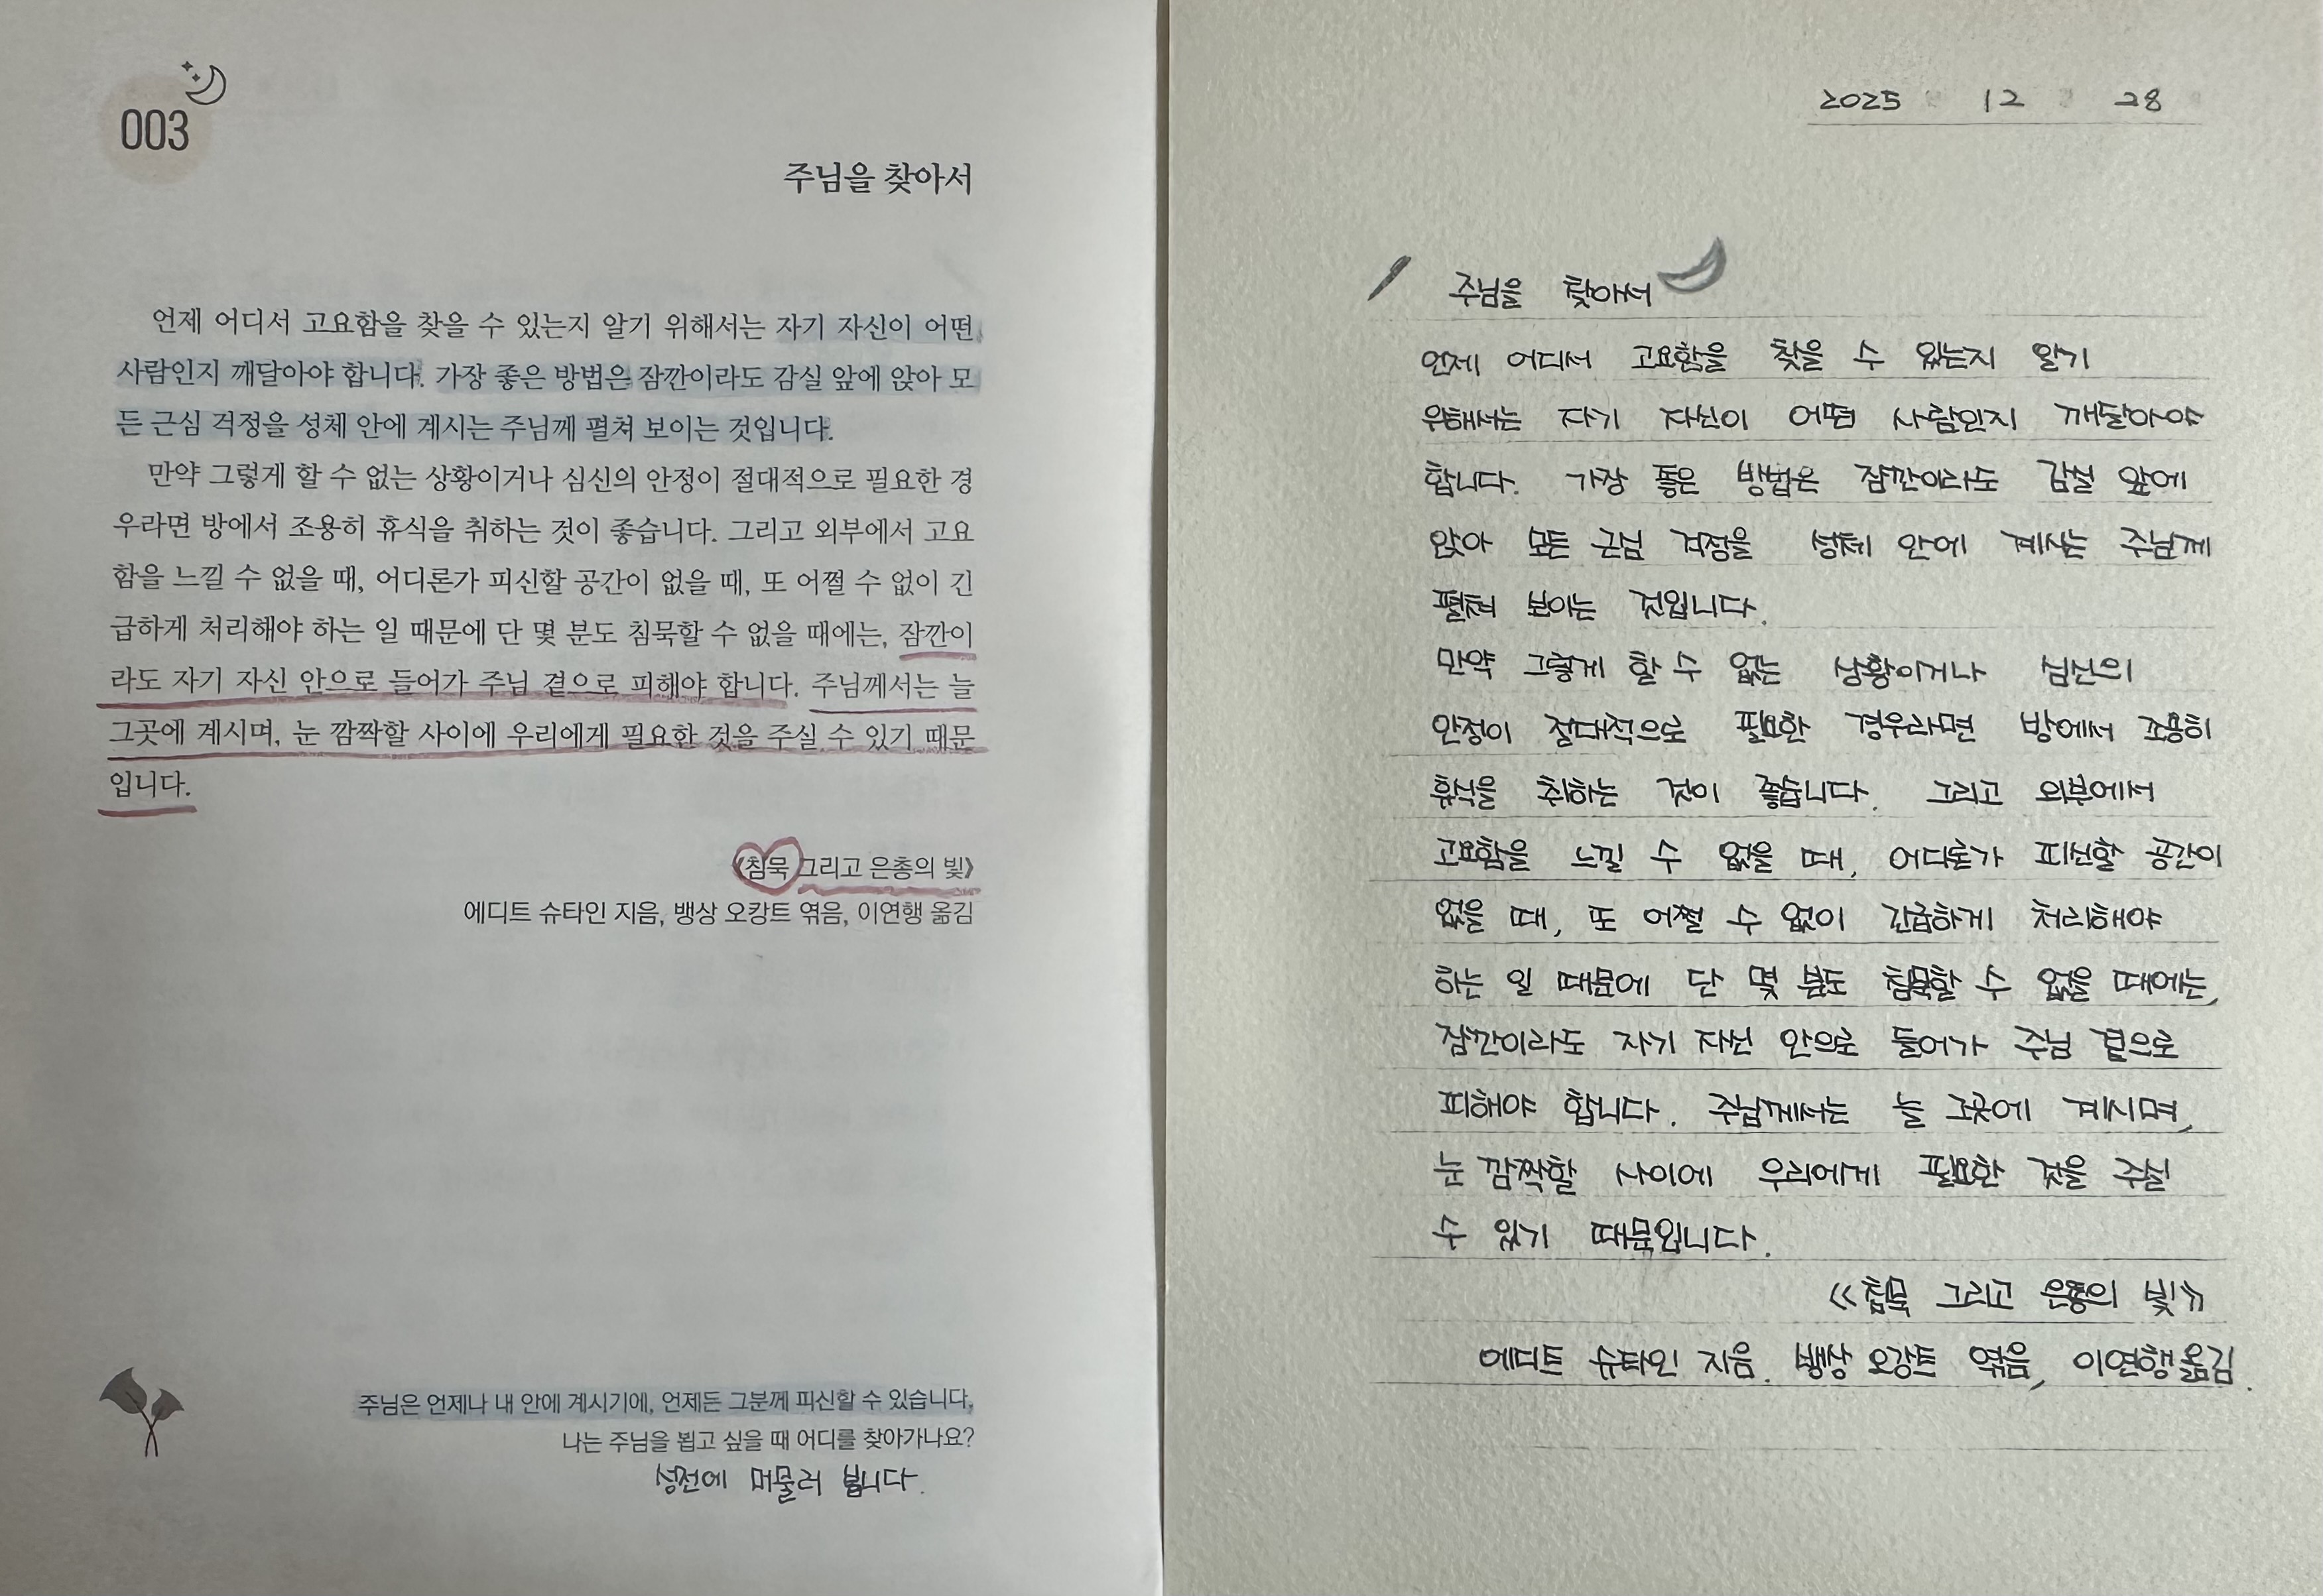 003
주님을 찾아서
언제 어디서 고요함을 찾을 수 있는지 알기 위해서는 자기 자신이 어떤
사람인지 깨달아야 합니다. 가장 좋은 방법은 잠깐이라도 감실 앞에 앉아 모
든 근심 걱정을 성체 안에 계시는 주님께 펼쳐 보이는 것입니다.
만약 그렇게 할 수 없는 상황이거나 심신의 안정이 절대적으로 필요한 경
우라면 방에서 조용히 휴식을 취하는 것이 좋습니다. 그리고 외부에서 고요
함을 느낄 수 없을 때, 어디론가 피신할 공간이 없을 때, 또 어쩔 수 없이 긴
급하게 처리해야 하는 일 때문에 단 몇 분도 침묵할 수 없을 때에는, 잠깐이
라도 자기 자신 안으로 들어가 주님 곁으로 피해야 합니다. 주님께서는 늘
그곳에 계시며, 눈 깜짝할 사이에 우리에게 필요한 것을 주실 수 있기 때문
입니다.
《침묵 그리고 은총의 빛》
에디트 슈타인 지음, 뱅상 오캉트 엮음, 이연행 옮김
주님은 언제나 내 안에 계시기에, 언제든 그분께 피신할 수 있습니다.
나는 주님을 뵙고 싶을 때 어디를 찾아가나요?
성전에 머물러 봅니다.
2025 12 28
주님을 찾아서
언제 어디서 고요함을 찾을 수 있는지 알기
위해서는 자기 자신이 어떤 사람인지 깨달아야
합니다. 가장 좋은 방법은 잠깐이라도 감실 앞에
앉아 모든 근심 걱정을 성체 안에 계시는 주님께
펼쳐 보이는 것입니다.
만약 그렇게 할 수 없는 상황이거나 심신의
안정이 절대적으로 필요한 경우라면 방에서 조용히
휴식을 취하는 것이 좋습니다. 그리고 외부에서
고요함을 느낄 수 없을 때, 어디론가 피신할 공간이
없을 때, 또 어쩔 수 없이 긴급하게 처리해야
하는 일 때문에 단 몇 분도 침묵할 수 없을 때에는,
잠깐이라도 자기 자신 안으로 들어가 주님 곁으로
피해야 합니다. 주님께서는 늘 그곳에 계시며,
눈 깜짝할 사이에 우리에게 필요한 것을 주실
수 있기 때문입니다.
《침묵 그리고 은총의 빛》
에디트 슈타인 지음. 뱅상 오캉트 엮음, 이연행 옮김.